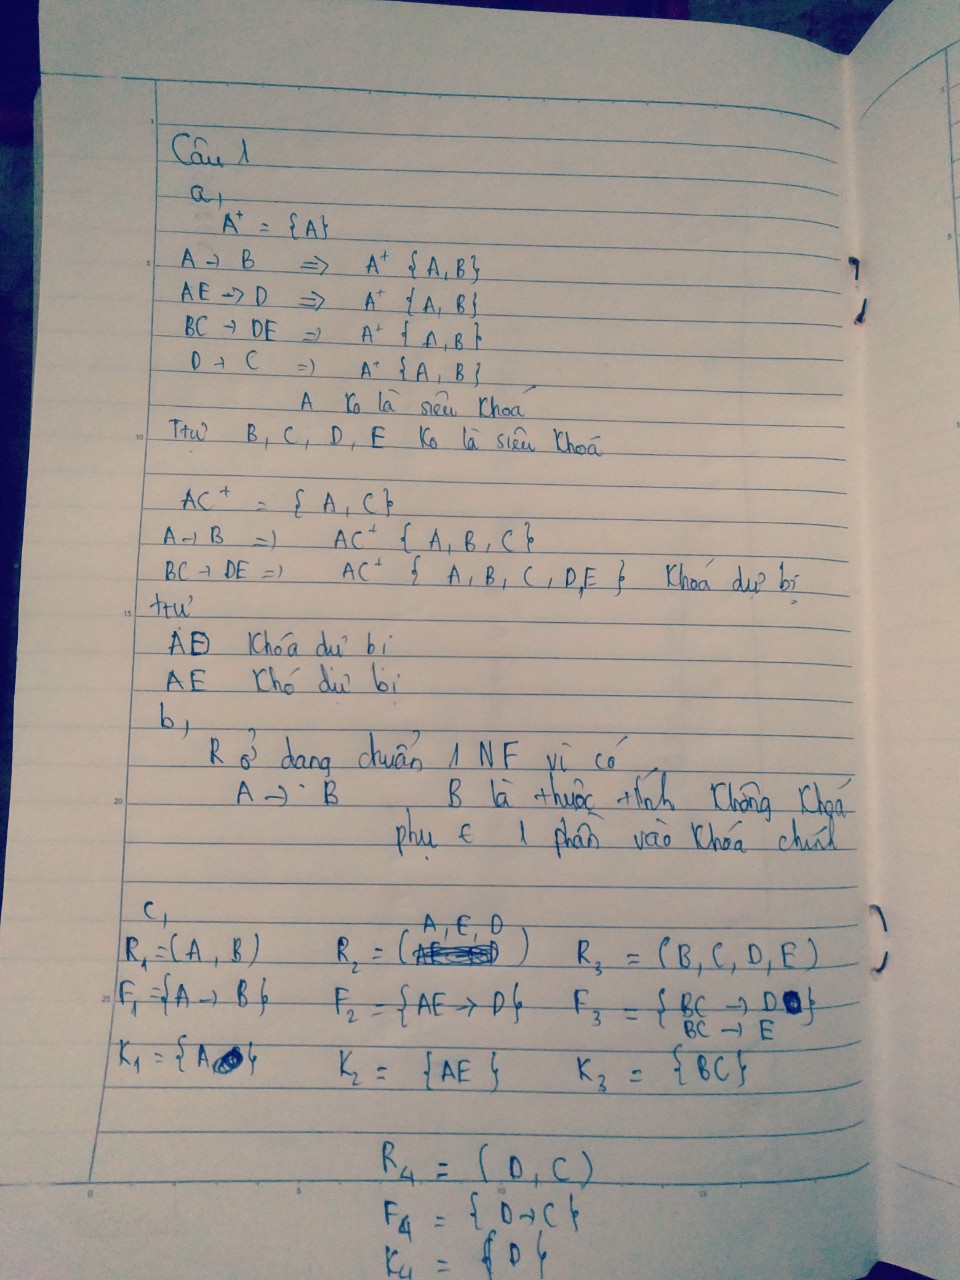 Câu 1
a,
A⁺ = {A}
A → B => A⁺ {A, B}
AE → D => A⁺ {A, B}
BC → DE => A⁺ {A, B}
D → C => A⁺ {A, B}
A ko là siêu khoá
Ttư B, C, D, E ko là siêu khoá
AC⁺ = {A, C}
A → B => AC⁺ {A, B, C}
BC → DE => AC⁺ {A, B, C, D, E} Khoá dự bị
ttư
AD Khóa dự bị
AE Khó dự bị
b,
R ở dang chuẩn 1 NF vì có
A → B B là thuộc tính không khoá
phụ t 1 phần vào khoá chính
c,
R₁ = (A, B) R₂ = (A, E, D) R₃ = (B, C, D, E)
F₁ = {A → B} F₂ = {AE → D} F₃ = {BC → D}
BC → E
K₁ = {A} K₂ = {AE} K₃ = {BC}
R₄ = (D, C)
F₄ = {D → C}
K₄ = {D}